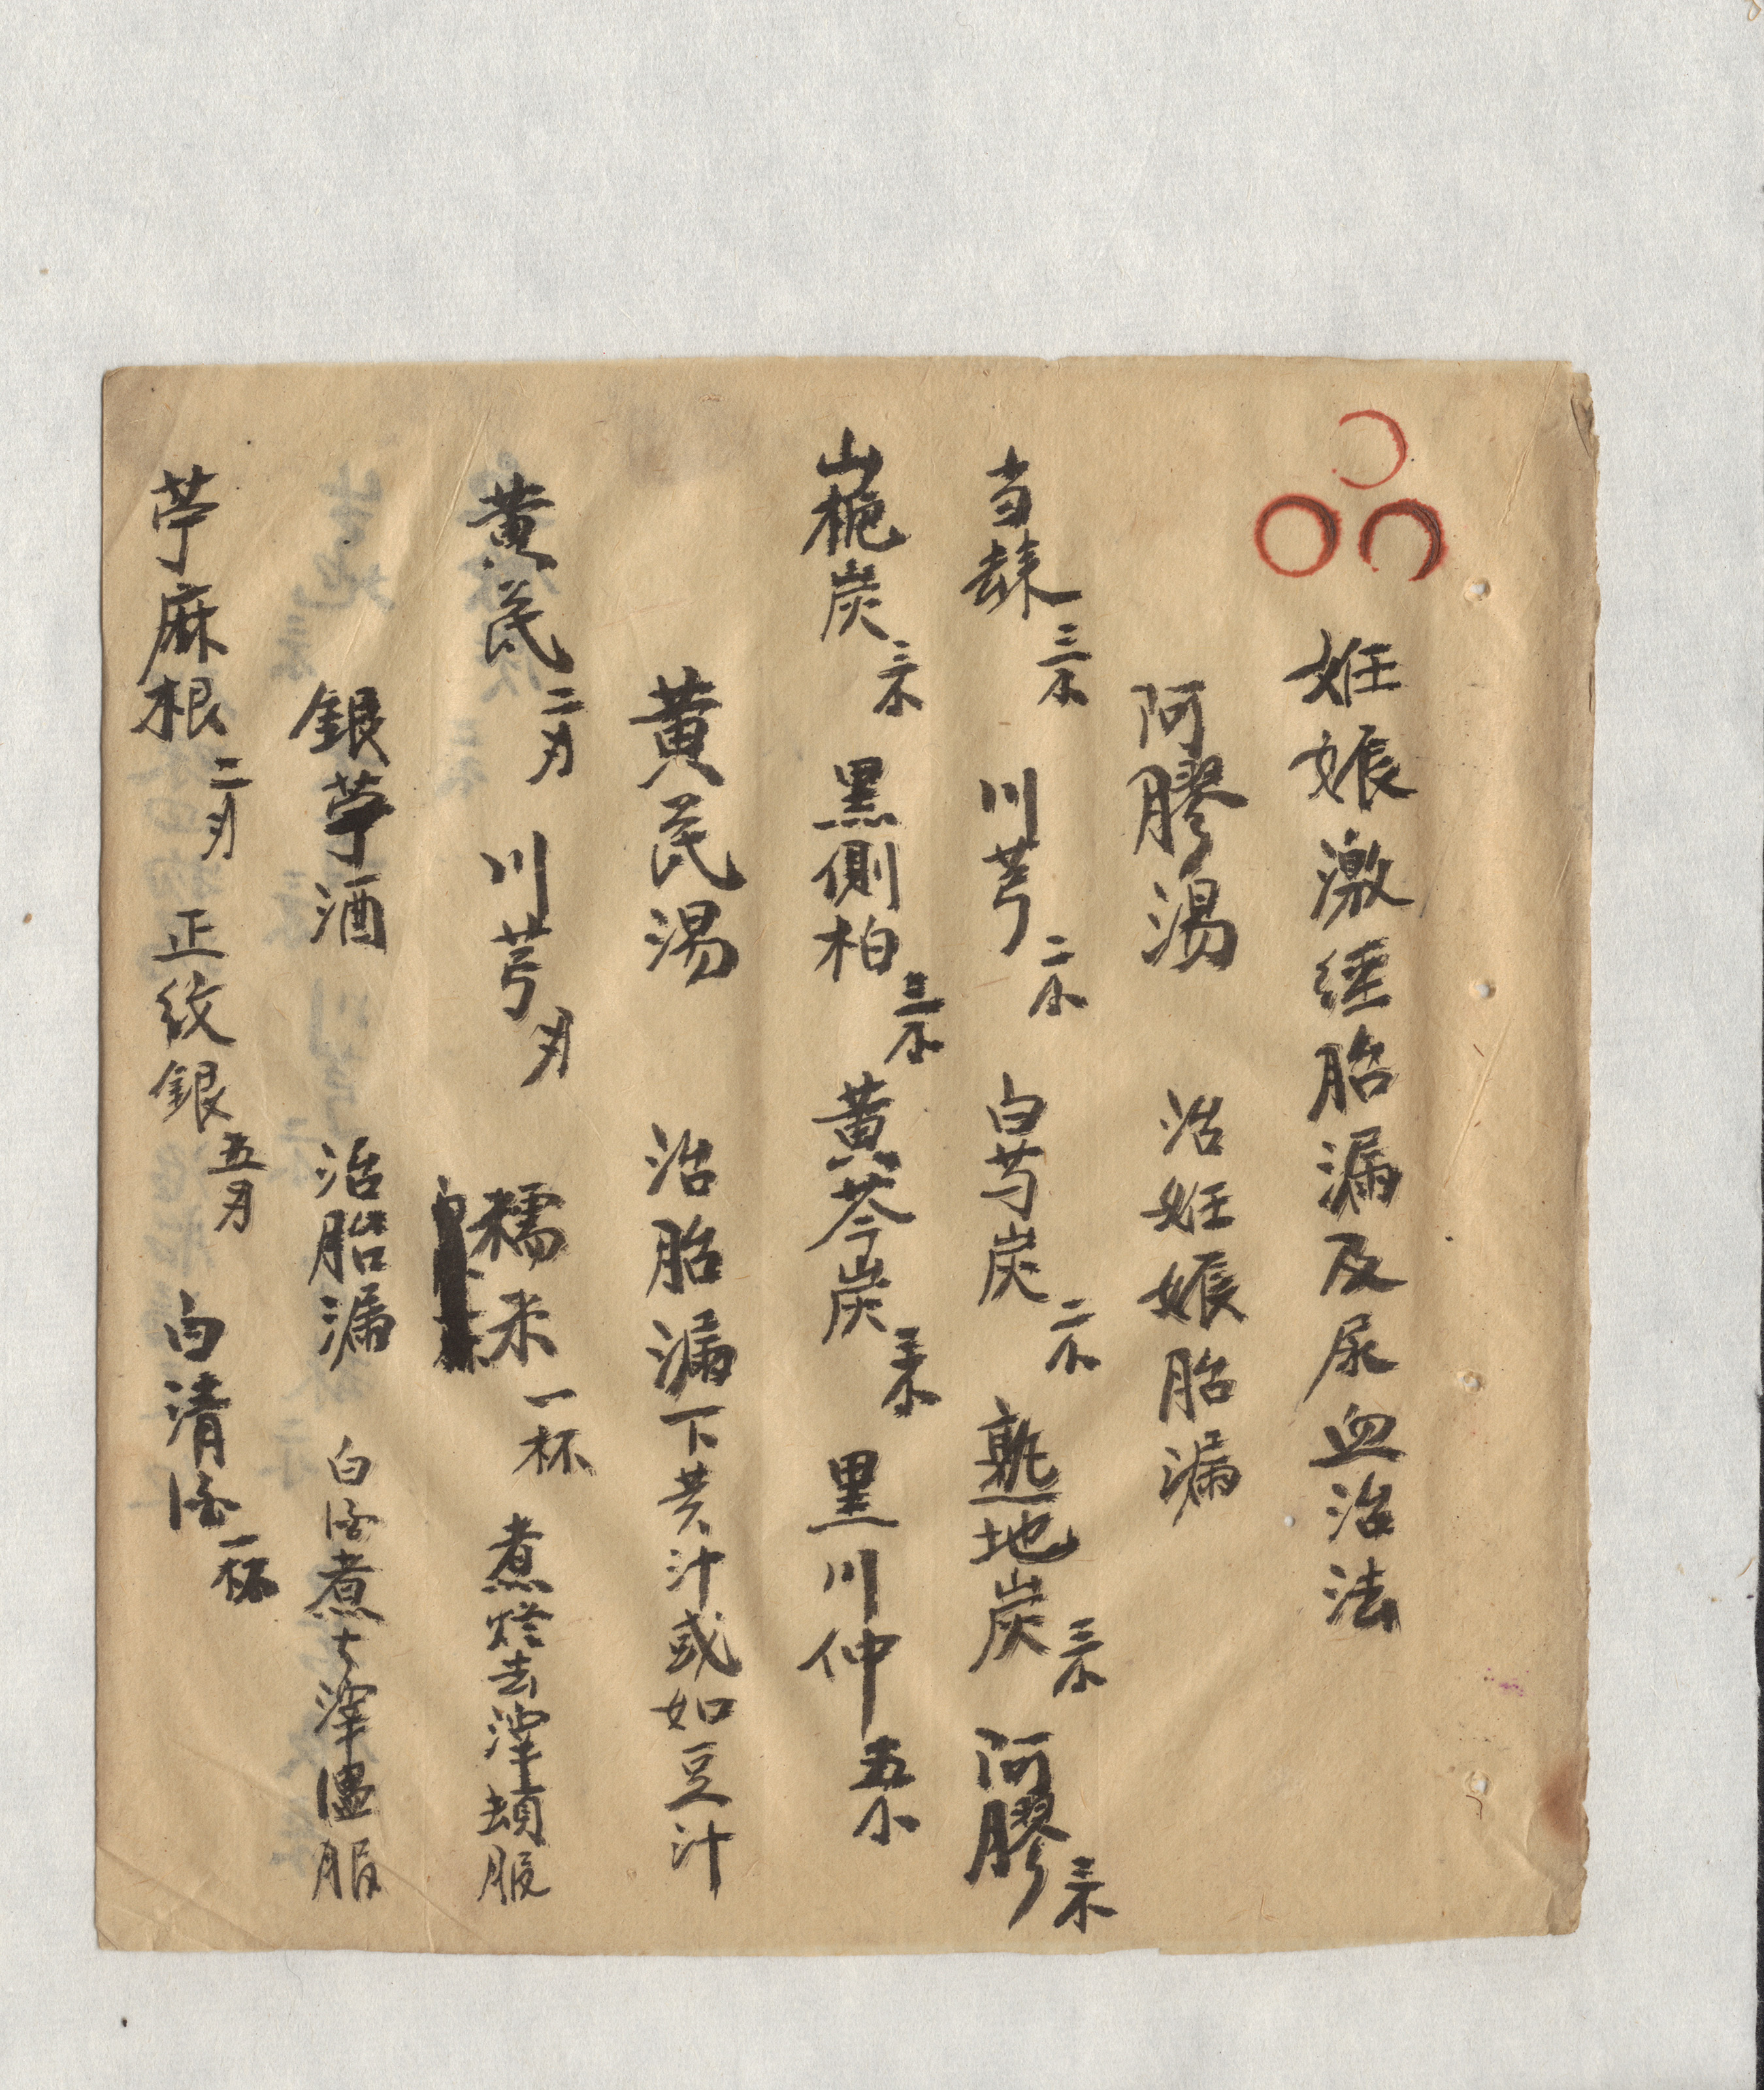 妊娠激經胎漏及尿血治法
阿膠湯 治妊娠胎漏
当歸三ホ 川芎二ホ 白芍炭二ホ 熟地炭三ホ 阿膠三ホ
山梔炭三ホ 黑側柏三ホ 黃芩炭三ホ 黑川仲五ホ
黃芪湯 治胎漏下黃汁或如豆汁
黃芪二刄 川芎刄 糯米一杯 煮 去滓頓服
銀苧酒 治胎漏 白酒煮去滓溫服
苧麻根二刄 正紋銀五刄 白清酒一杯